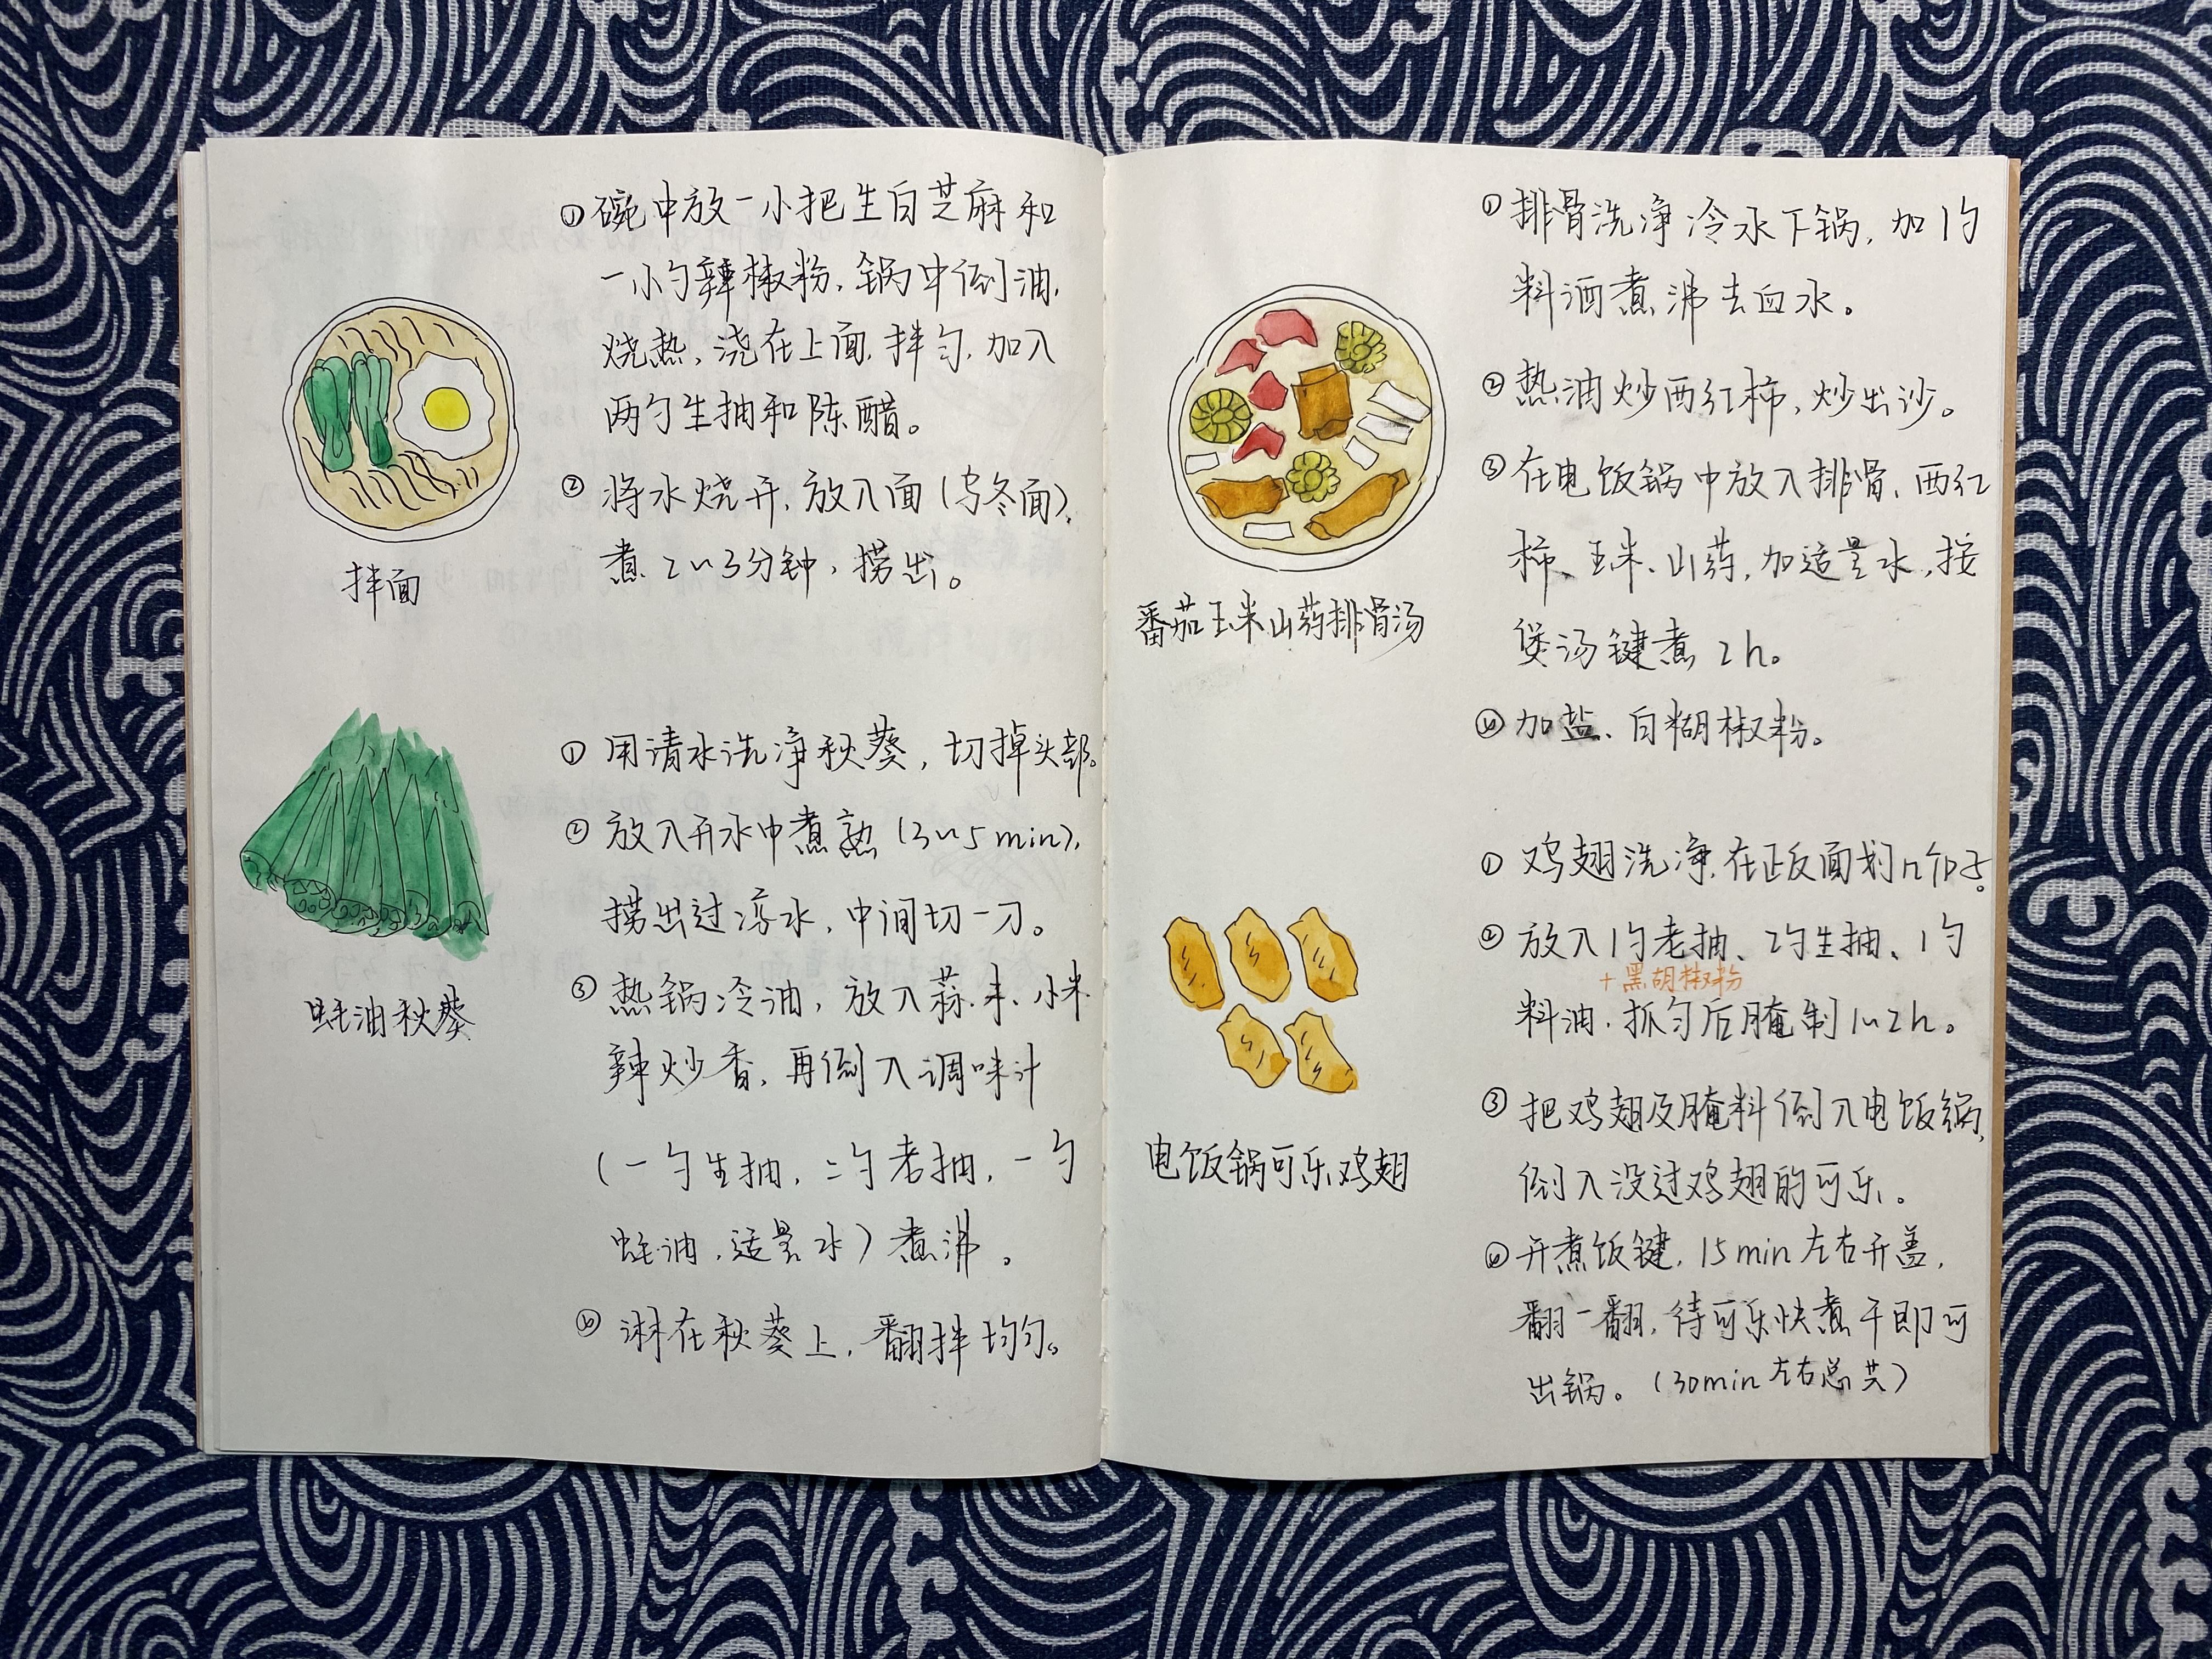 ①碗中放一小把生白芝麻和
一小勺辣椒粉,锅中倒油,
烧热,浇在上面,拌匀,加入
两勺生抽和陈醋。
②将水烧开,放入面(乌冬面),
煮2~3分钟,捞出。
拌面
①用清水洗净秋葵,切掉头部。
②放入开水中煮熟(3~5min),
捞出过凉水,中间切一刀。
③热锅冷油,放入蒜末、小米
辣炒香,再倒入调味汁
(一勺生抽,二勺老抽,一勺
蚝油,适量水)煮沸。
④淋在秋葵上,翻拌均匀。
蚝油秋葵
①排骨洗净冷水下锅,加1勺
料酒煮沸去血水。
②热油炒西红柿,炒出沙。
③在电饭锅中放入排骨、西红
柿、玉米、山药,加适量水,按
煲汤键煮2h。
④加盐、白糊椒粉。
番茄玉米山药排骨汤
①鸡翅洗净,在正反面划几个口子。
②放入1勺老抽、2勺生抽、1勺
+黑胡椒粉
料油,抓匀后腌制1~2h。
③把鸡翅及腌料倒入电饭锅,
倒入没过鸡翅的可乐。
④开煮饭键,15min左右开盖,
翻一翻,待可乐快煮干即可
出锅。(30min左右总共)
电饭锅可乐鸡翅